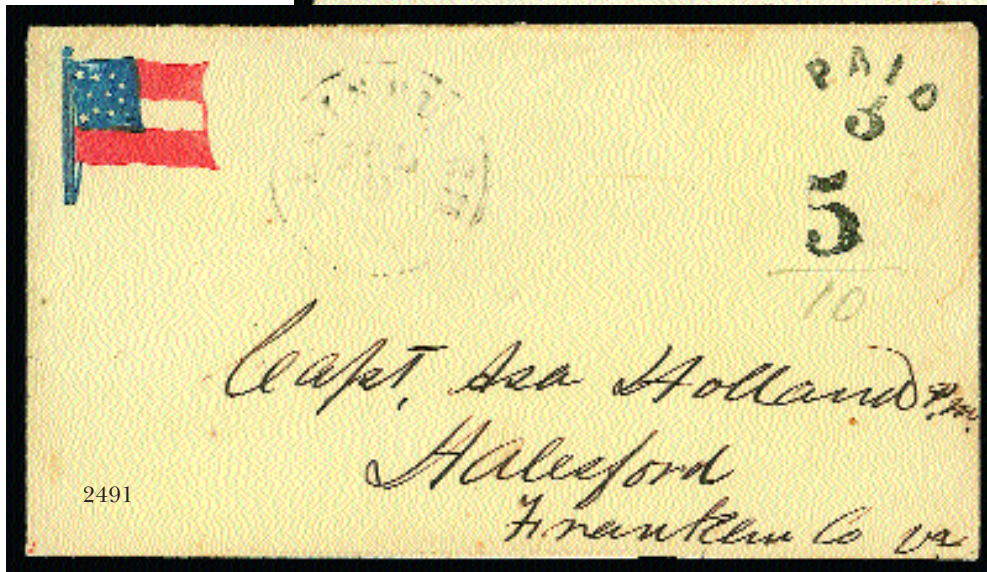 PAID
5
5
10
Capt. Asa Holland P.M.
Halesford
Franklin Co Va
2491